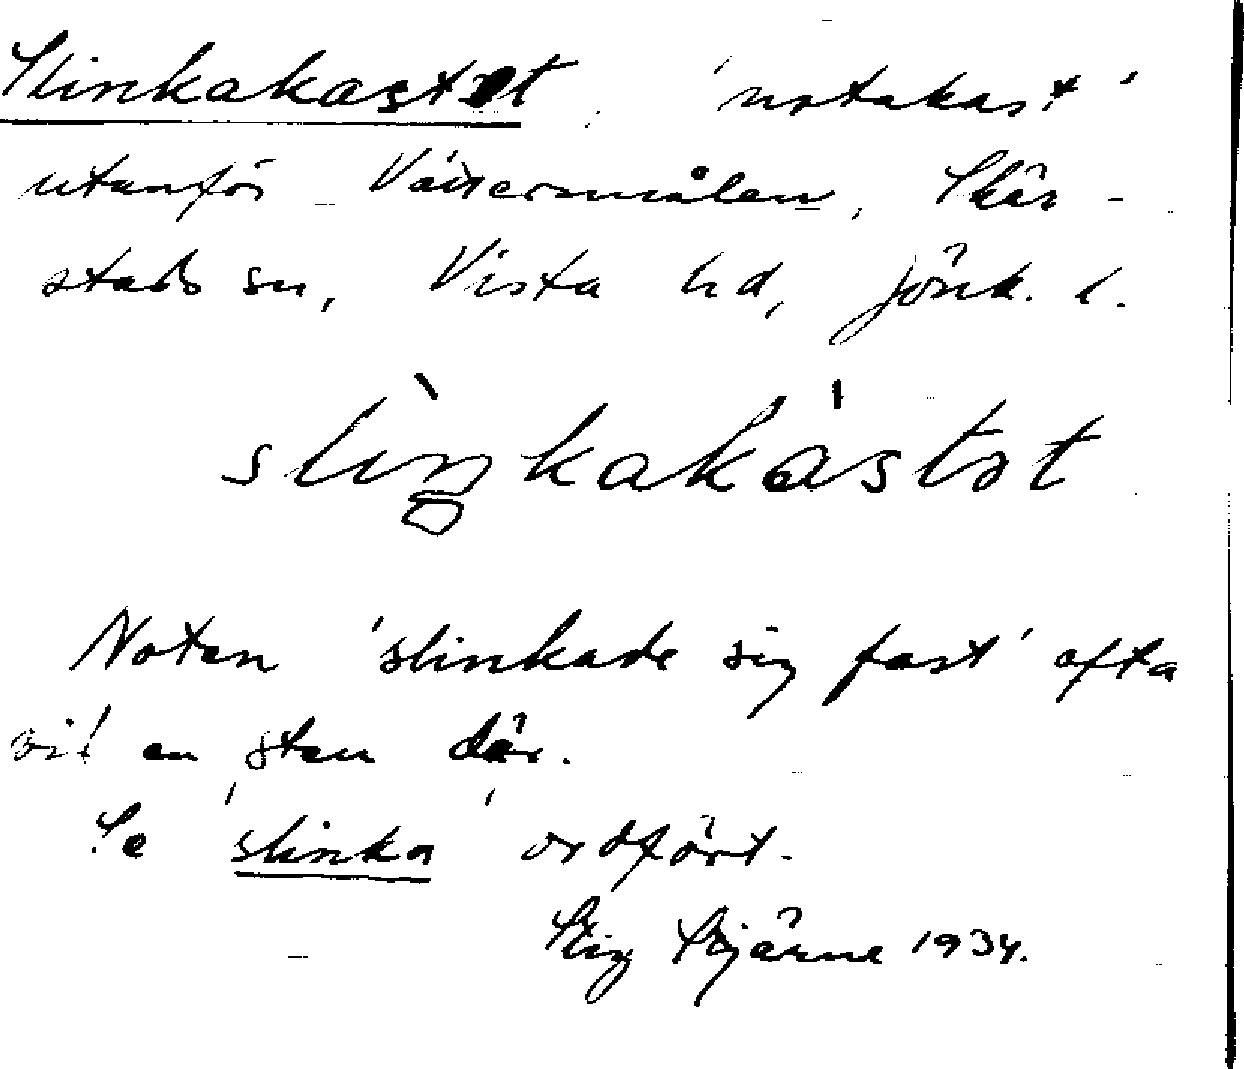 Slinkakastet, 'notakast'
utanför Vättersmålen, Skär-
stads sn, Vista hd, Jönk. l.
slìŋkakástət
Noten 'slinkade sig fast' ofta
vid en sten där.
Se 'slinka' ordfört.
Stig Stjärne 1934.